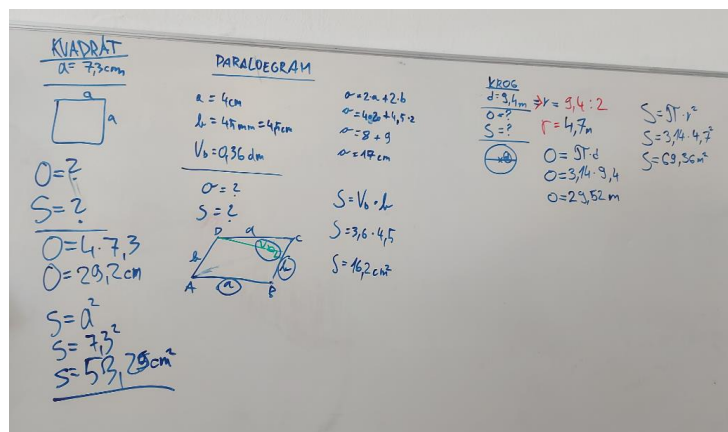 KVADRÁT
a = 7,3cm
a
a
O=?
S=?
O=4·7,3
O=29,2cm
S=a²
S=7,3²
S=53,29cm²
PARALELEGRAM
a = 4cm
b = 45mm=4,5cm
Vb=0,36dm
o=?
S=?
D a C
b Vb b
A a B
o=2·a+2·b
o=4·2+4,5·2
o=8+9
o=17cm
S=Vb·b
S=3,6·4,5
S=16,2cm²
KROG
d=9,4m ⇒ r = 9,4:2
O=? r=4,7m
S=?
O=π·d
O=3,14·9,4
O=29,52m
S=π·r²
S=3,14·4,7²
S=69,36m²